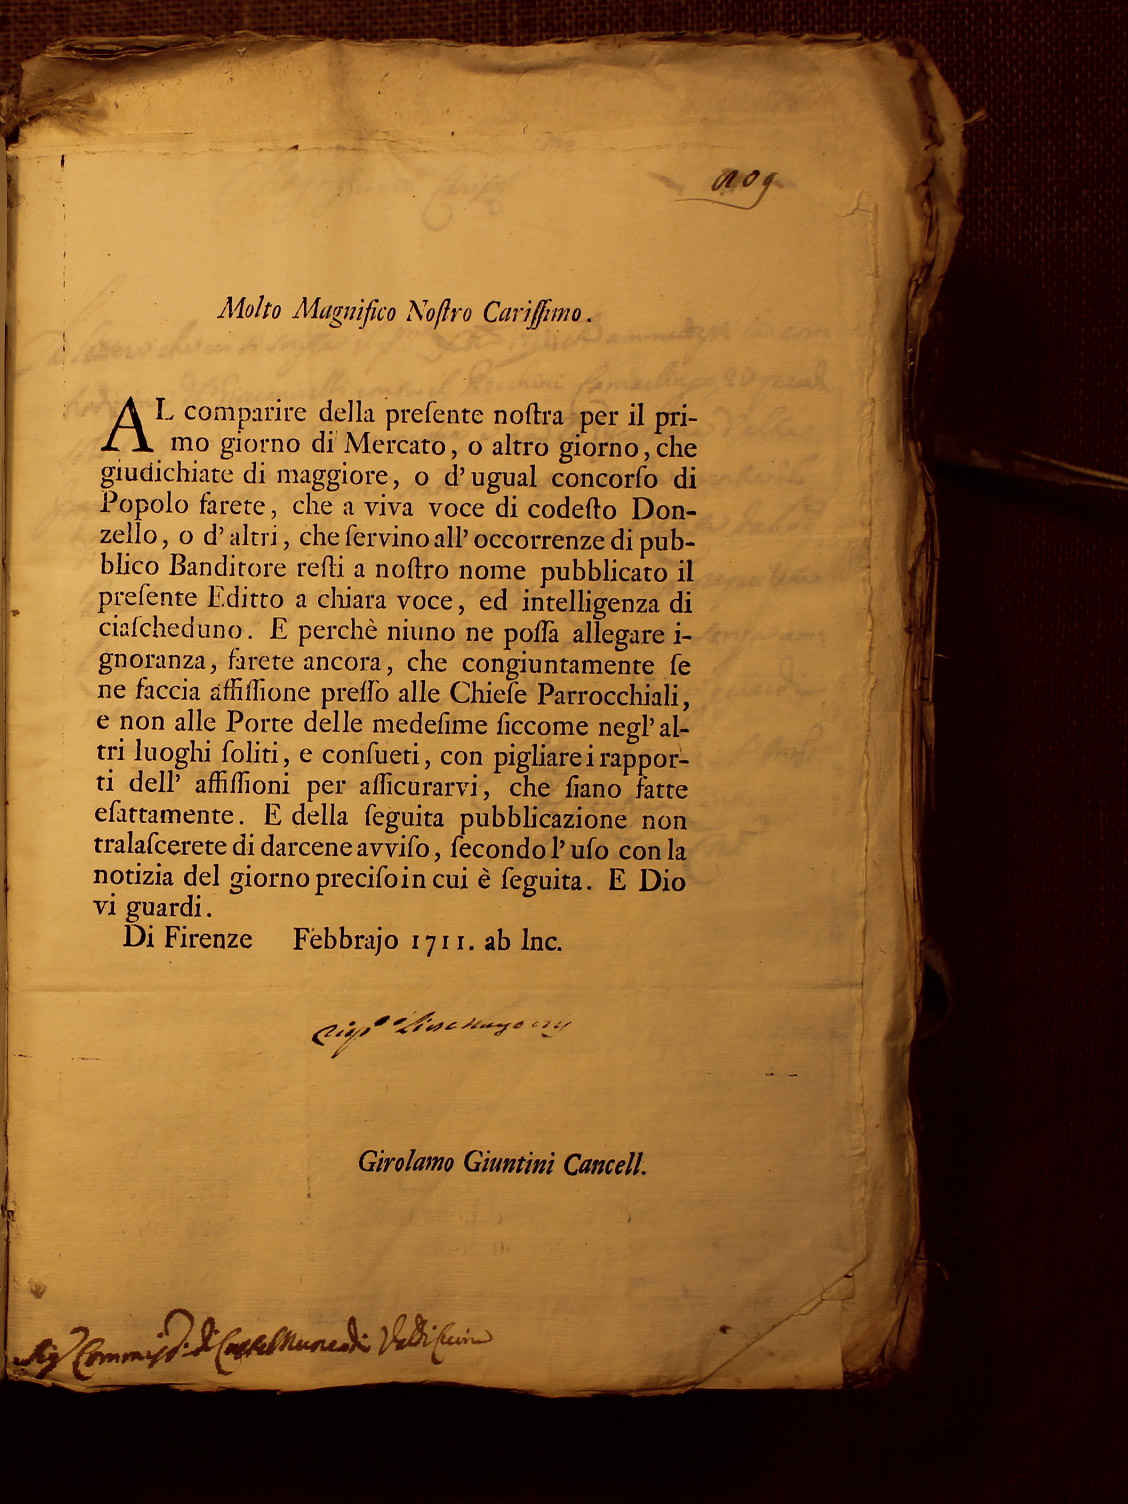 Molto Magnifico Noſtro Cariſſimo.
AL comparire della preſente noſtra per il pri-
mo giorno di Mercato, o altro giorno, che
giudichiate di maggiore, o d'ugual concorſo di
Popolo farete, che a viva voce di codeſto Don-
zello, o d'altri, che ſervino all'occorrenze di pub-
blico Banditore reſti a noſtro nome pubblicato il
preſente Editto a chiara voce, ed intelligenza di
ciaſcheduno. E perchè niuno ne poſſa allegare i-
gnoranza, farete ancora, che congiuntamente ſe
ne faccia affiſſione preſſo alle Chieſe Parrocchiali,
e non alle Porte delle medeſime ſiccome negl'al-
tri luoghi ſoliti, e conſueti, con pigliare i rappor-
ti dell' affiſſioni per aſſicurarvi, che ſiano fatte
eſattamente. E della ſeguita pubblicazione non
tralaſcerete di darcene avviſo, ſecondo l'uſo con la
notizia del giorno preciſo in cui è ſeguita. E Dio
vi guardi.
Di Firenze Febbrajo 1711. ab Inc.
Girolamo Giuntini Cancell.